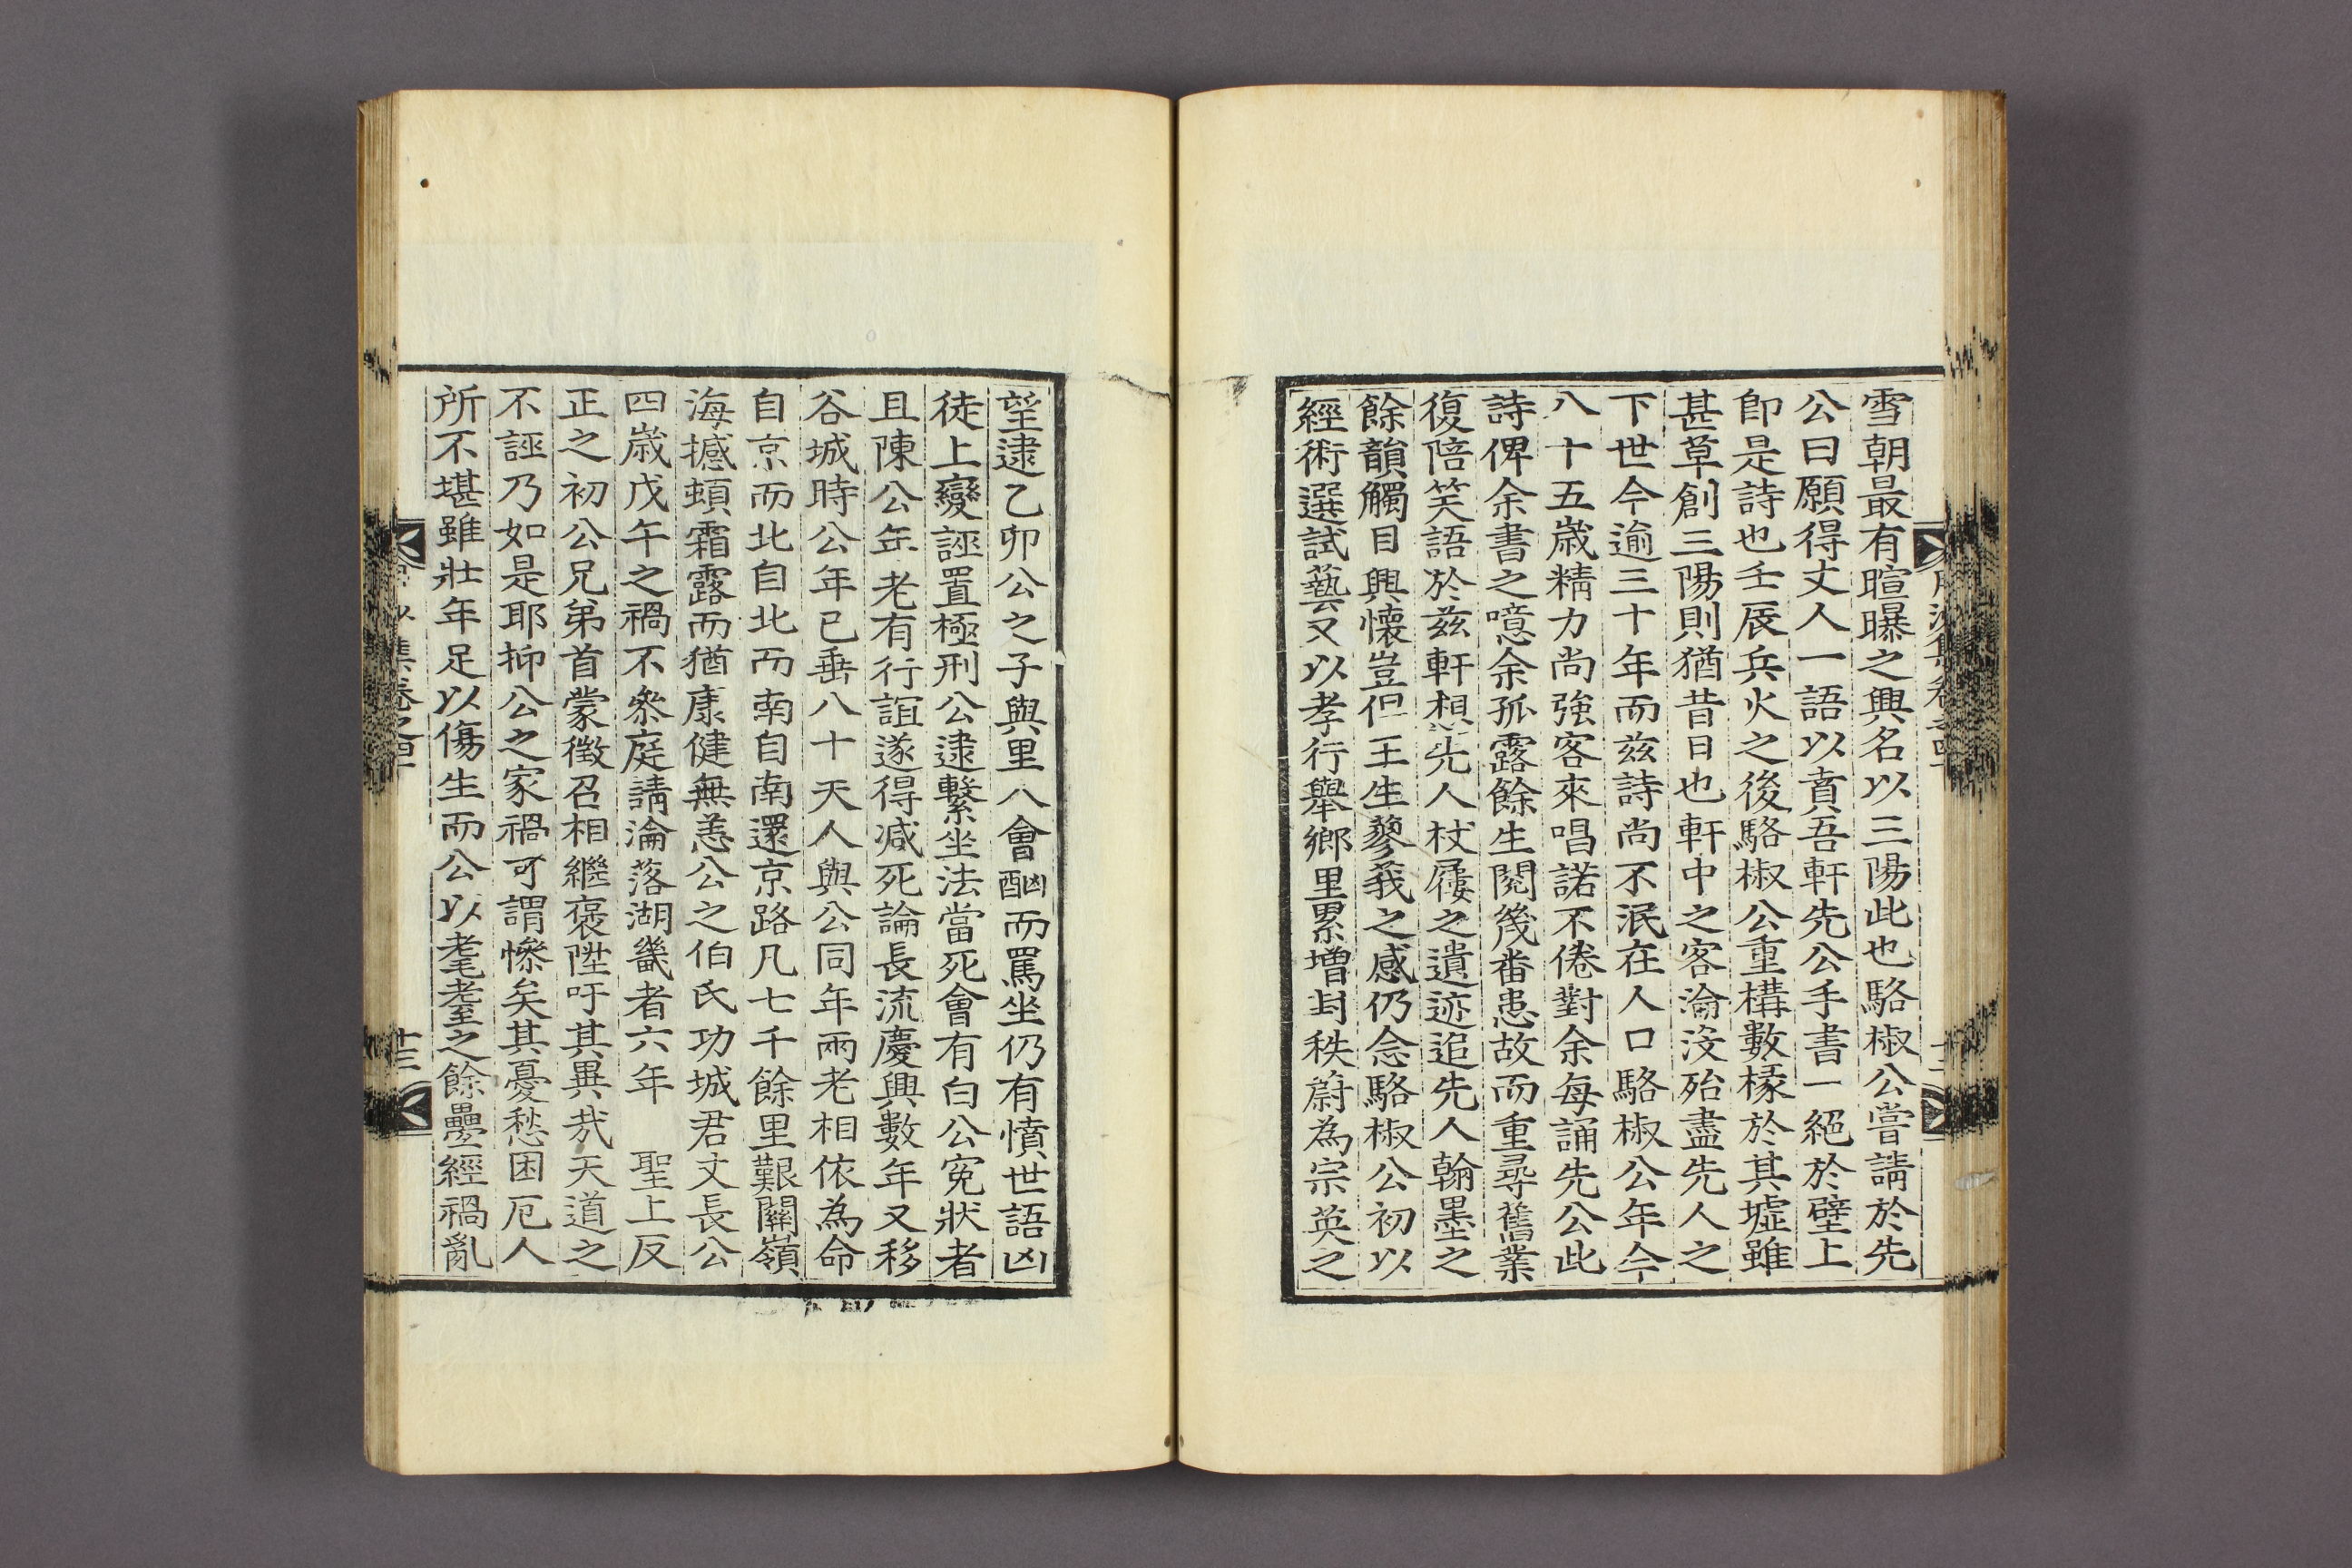 雪朝最有暄曝之興名以三陽此也駱椒公嘗請於先
公曰願得丈人一語以賁吾軒先公手書一絕於壁上
卽是詩也壬辰兵火之後駱椒公重構數椽於其墟雖
甚草創三陽則猶昔日也軒中之客淪沒殆盡先人之
下世今逾三十年而茲詩尚不泯在人口駱椒公年今
八十五歲精力尚強客來唱諾不倦對余每誦先公此
詩俾余書之噫余孤露餘生閱幾番患故而重尋舊業
復陪笑語於茲軒想先人杖屨之遺迹追先人翰墨之
餘韻觸目興懷豈但王生蓼莪之感仍念駱椒公初以
經術選試藝又以孝行舉鄉里累增封秩蔚為宗英之
望逮乙卯公之子與里八會酗而罵坐仍有憤世語凶
徒上變誣置極刑公逮繫坐法當死會有白公冤狀者
且陳公年老有行誼遂得減死論長流慶興數年又移
谷城時公年已垂八十天人與公同年兩老相依為命
自京而北自北而南自南還京路凡七千餘里艱關嶺
海撼頓霜露而猶康健無恙公之伯氏功城君丈長公
四歲戊午之禍不參庭請淪落湖畿者六年　聖上反
正之初公兄弟首蒙徵召相繼褒陞吁其異哉天道之
不誣乃如是耶抑公之家禍可謂慘矣其憂愁困厄人
所不堪雖壯年足以傷生而公以耄耋之餘疊經禍亂
集卷之四
十三